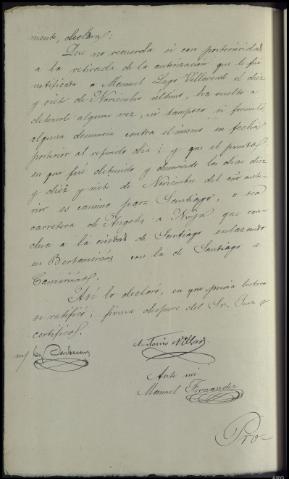 mente, declara:
Que no recuerda si con posterioridad
a la retirada de la autorización que le fue
notificada a Manuel Lago Villaverde el diez
y siete de Noviembre último, ha vuelto a
detenerle alguna vez, ni tampoco si formuló
alguna denuncia contra el mismo en fecha
posterior al referido día; y que el punto
en que fué detenido y denunciado los días diez
y diez y siete de Noviembre del año ante-
rior es camino para Santiago, o sea
carretera de Angeles a Noya que con-
duce a la ciudad de Santiago enlazando
en Bertamirans con la de Santiago a
Comiñas.
Así lo declaró, en que previa lectura
se ratificó; firma después del Sr. Juez y
certifico.
Antonio Villar
Ante mi
Manuel Fernandez
Pro-